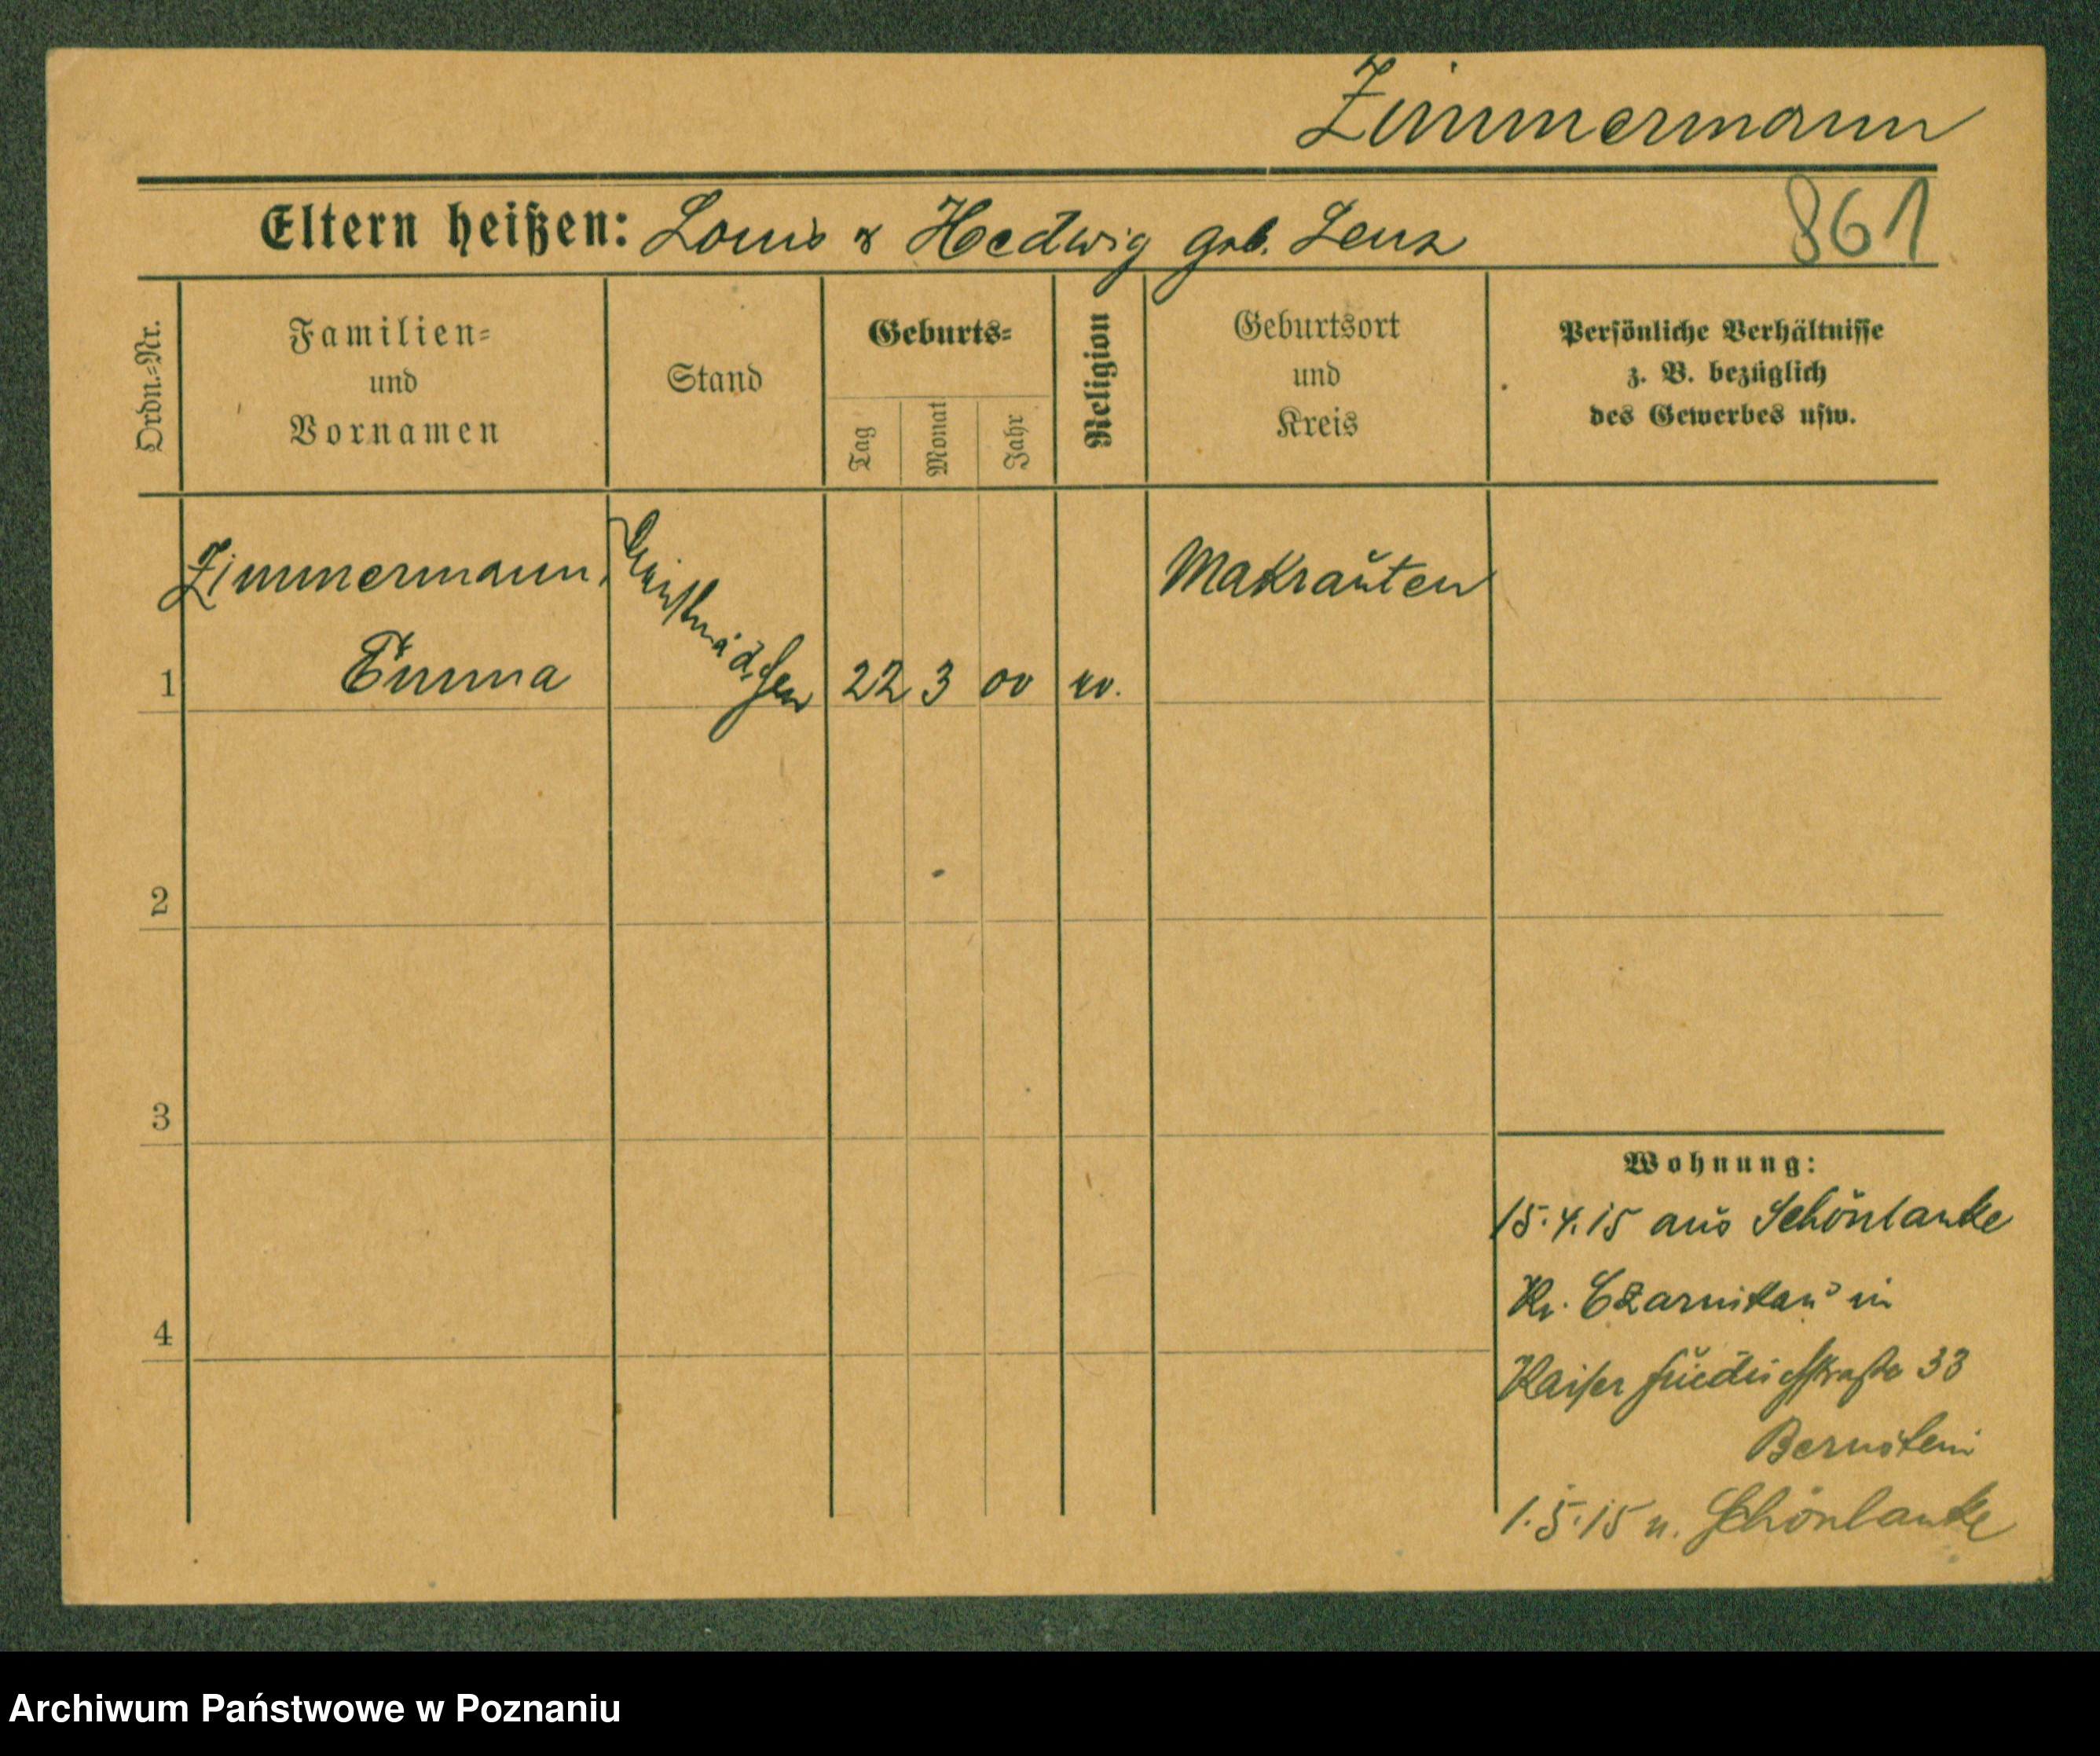 Zimmermann
Eltern heißen: Louis & Hedwig geb. Lenz
861
Ordn.-Nr.
Familien-
und
Vornamen
Stand
Geburts-
Tag
Monat
Jahr
Religion
Geburtsort
und
Kreis
Persönliche Verhältnisse
z. B. bezüglich
des Gewerbes usw.
Zimmermann,
Emma
Dienstmädchen
1
22
3
00
ev.
Makrauten
2
3
4
Wohnung:
15.4.15 aus Schönlanke
Kr. Czarnikau in
Kaiser Friedrichstraße 33
Bernstein
1.5.15 n. Schönlanke
Archiwum Państwowe w Poznaniu